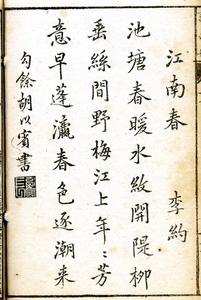 江南春 李約
池塘春暖水紋開隄柳
垂絲間野梅江上年〻芳
意早蓬瀛春色逐潮来
勾餘胡以賓書